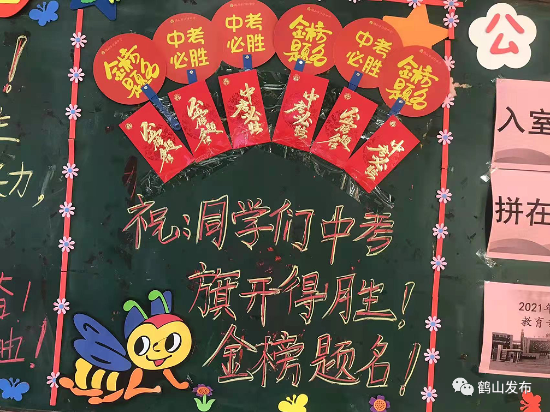 金榜题名 中考必胜 金榜题名 金榜题名 中考必胜 金榜题名
金榜题名 金榜题名 中考必胜 中考必胜 中考必胜
祝:同学们中考
旗开得胜!
金榜题名!
公
入室
拼在
2021年
教育
鹤山发布